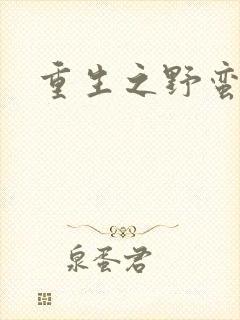 重生之野蛮
泉蛋君